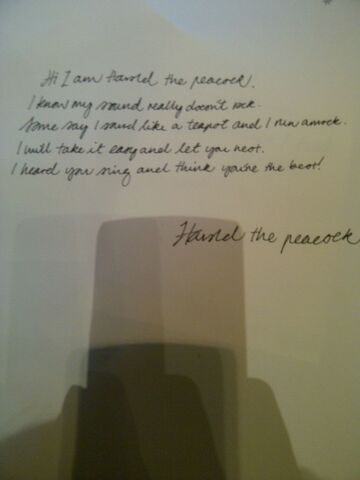 Hi I am Harold the peacock.
I know my sound really doesn't rock.
Some say I sound like a teapot and I run amock.
I will take it easy and let you rest.
I heard you sing and think you're the best!
Harold the peacock